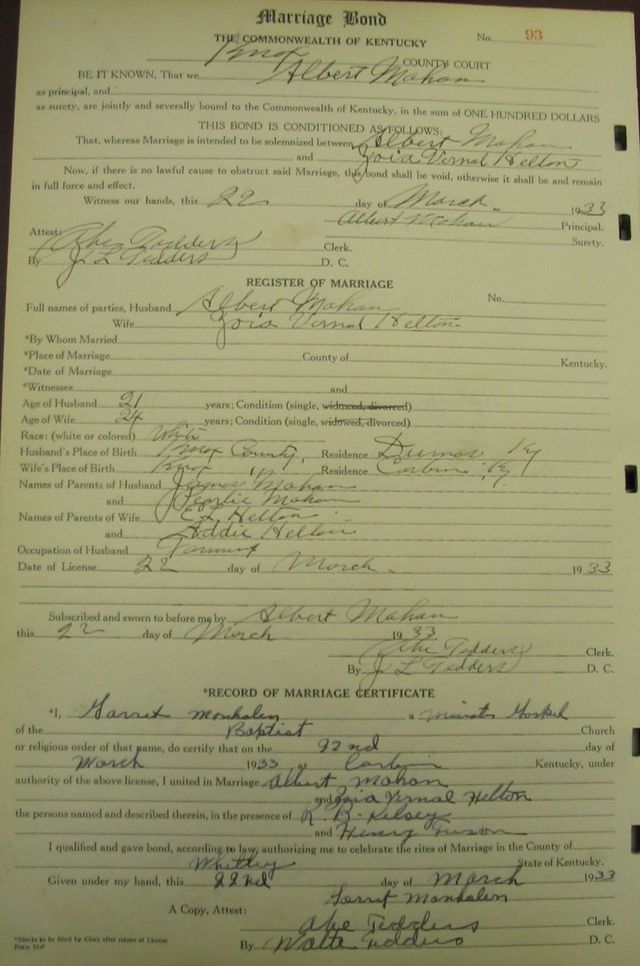 Marriage Bond
THE COMMONWEALTH OF KENTUCKY No. 93
Knox COUNTY COURT
BE IT KNOWN, That we Albert Mahan
as principal, and
as surety, are jointly and severally bound to the Commonwealth of Kentucky, in the sum of ONE HUNDRED DOLLARS
THIS BOND IS CONDITIONED AS FOLLOWS:
That, whereas Marriage is intended to be solemnized between Albert Mahan
and Zoia Vernal Helton
Now, if there is no lawful cause to obstruct said Marriage, this bond shall be void, otherwise it shall be and remain
in full force and effect.
Witness our hands, this 22 day of March 1933
Albert Mahan Principal.
Attest: Surety.
Abe Tedders Clerk.
By J L Tedders D. C.
REGISTER OF MARRIAGE
Full names of parties, Husband Albert Mahan No.
Wife Zoia Vernal Helton
*By Whom Married
*Place of Marriage County of Kentucky.
*Date of Marriage
*Witnesses and
Age of Husband 21 years; Condition (single, widowed, divorced)
Age of Wife 24 years; Condition (single, widowed, divorced)
Race: (white or colored) White
Husband's Place of Birth Knox County, Residence Ky
Wife's Place of Birth Knox " Residence Corbin, Ky
Names of Parents of Husband James Mahan
and Mahan
Names of Parents of Wife E L Helton
and Addie Helton
Occupation of Husband
Date of License 22 day of March 1933
Subscribed and sworn to before me by Albert Mahan
this 22 day of March 1933
Abe Tedders Clerk.
By J L Tedders D. C.
*RECORD OF MARRIAGE CERTIFICATE
*I, a Gospel
of the Baptist Church
or religious order of that name, do certify that on the 22nd day of
March 1933, at Corbin Kentucky, under
authority of the above license, I united in Marriage Albert Mahan
and Zoia Vernal Helton
the persons named and described therein, in the presence of R. B. Kelsey
and Henry
I qualified and gave bond, according to law, authorizing me to celebrate the rites of Marriage in the County of
Whitley State of Kentucky.
Given under my hand, this 22nd day of March 1933
A Copy, Attest:
Abe Tedders Clerk.
*Blanks to be filled by Clerk after return of License By Tedders D. C.